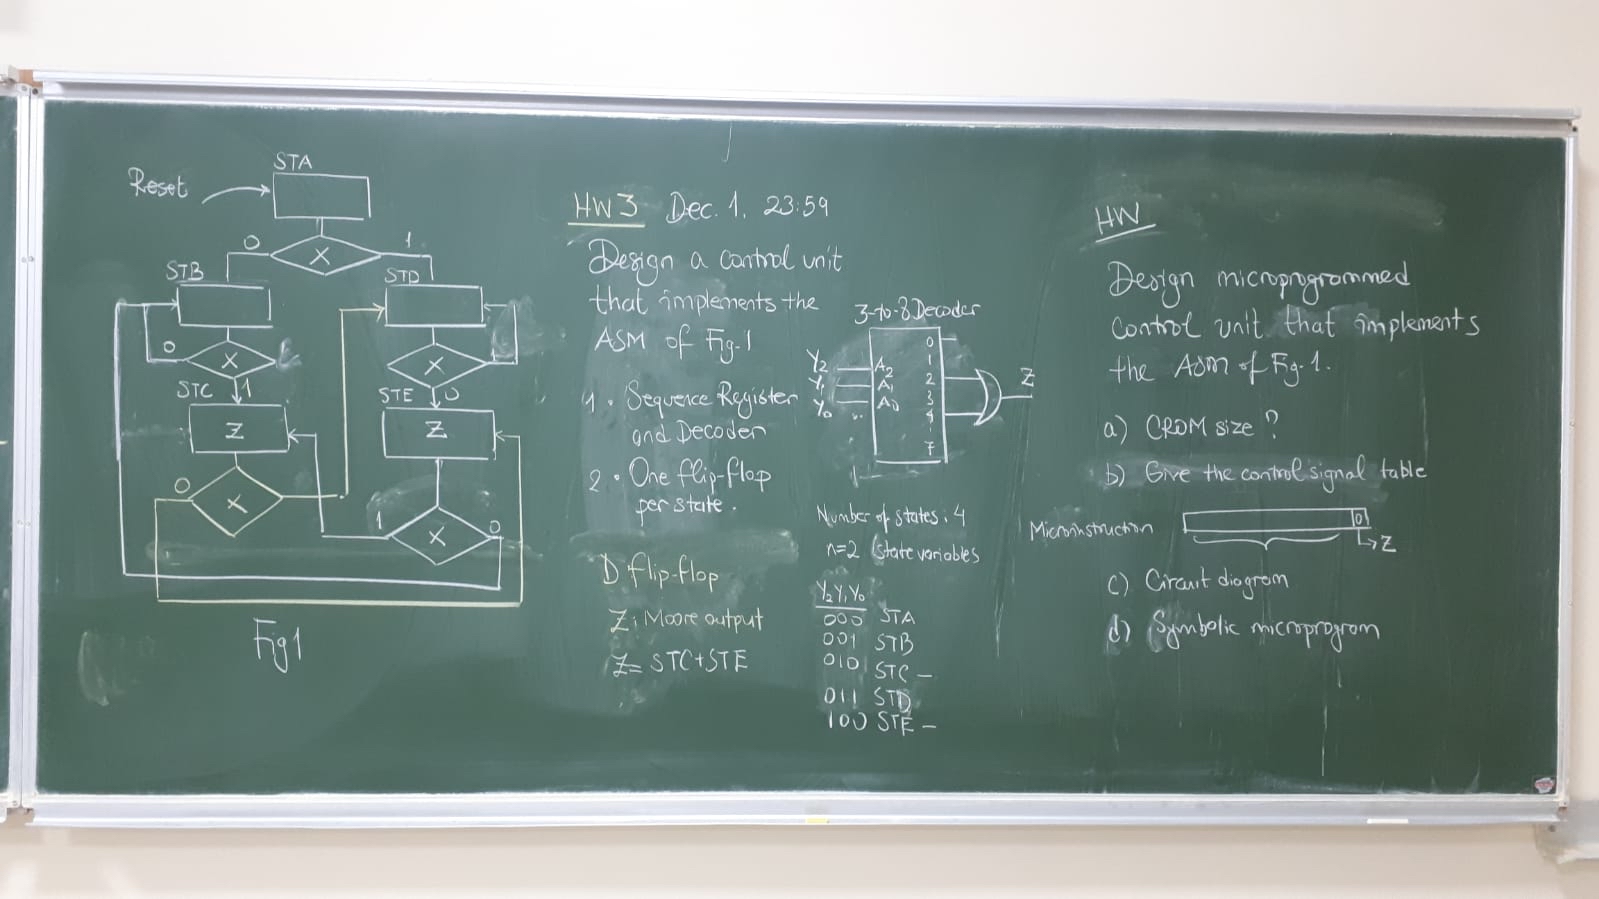 STA
Reset
0
1
X
STB
STD
0
X
X
STC
1
STE
0
Z
Z
0
X
1
X
0
Fig 1
HW3 Dec. 1, 23:59
Design a control unit
that implements the
ASM of Fig. 1
1. Sequence Register
and Decoder
2. One flip-flop
per state.
D flip-flop
Z: Moore output
Z= STC+STE
3-to-8 Decoder
Y2
Y1
Y0
A2
A1
A0
0
1
2
3
4
7
Z
Number of states: 4
n=2 (state variables
Y2 Y1 Y0
000 STA
001 STB
010 STC -
011 STD
100 STE -
HW
Design microprogrammed
Control unit that implements
the ASM of Fig. 1.
a) CROM size?
b) Give the control signal table
Microinstruction
0
Z
c) Circuit diagram
d) Symbolic microprogram